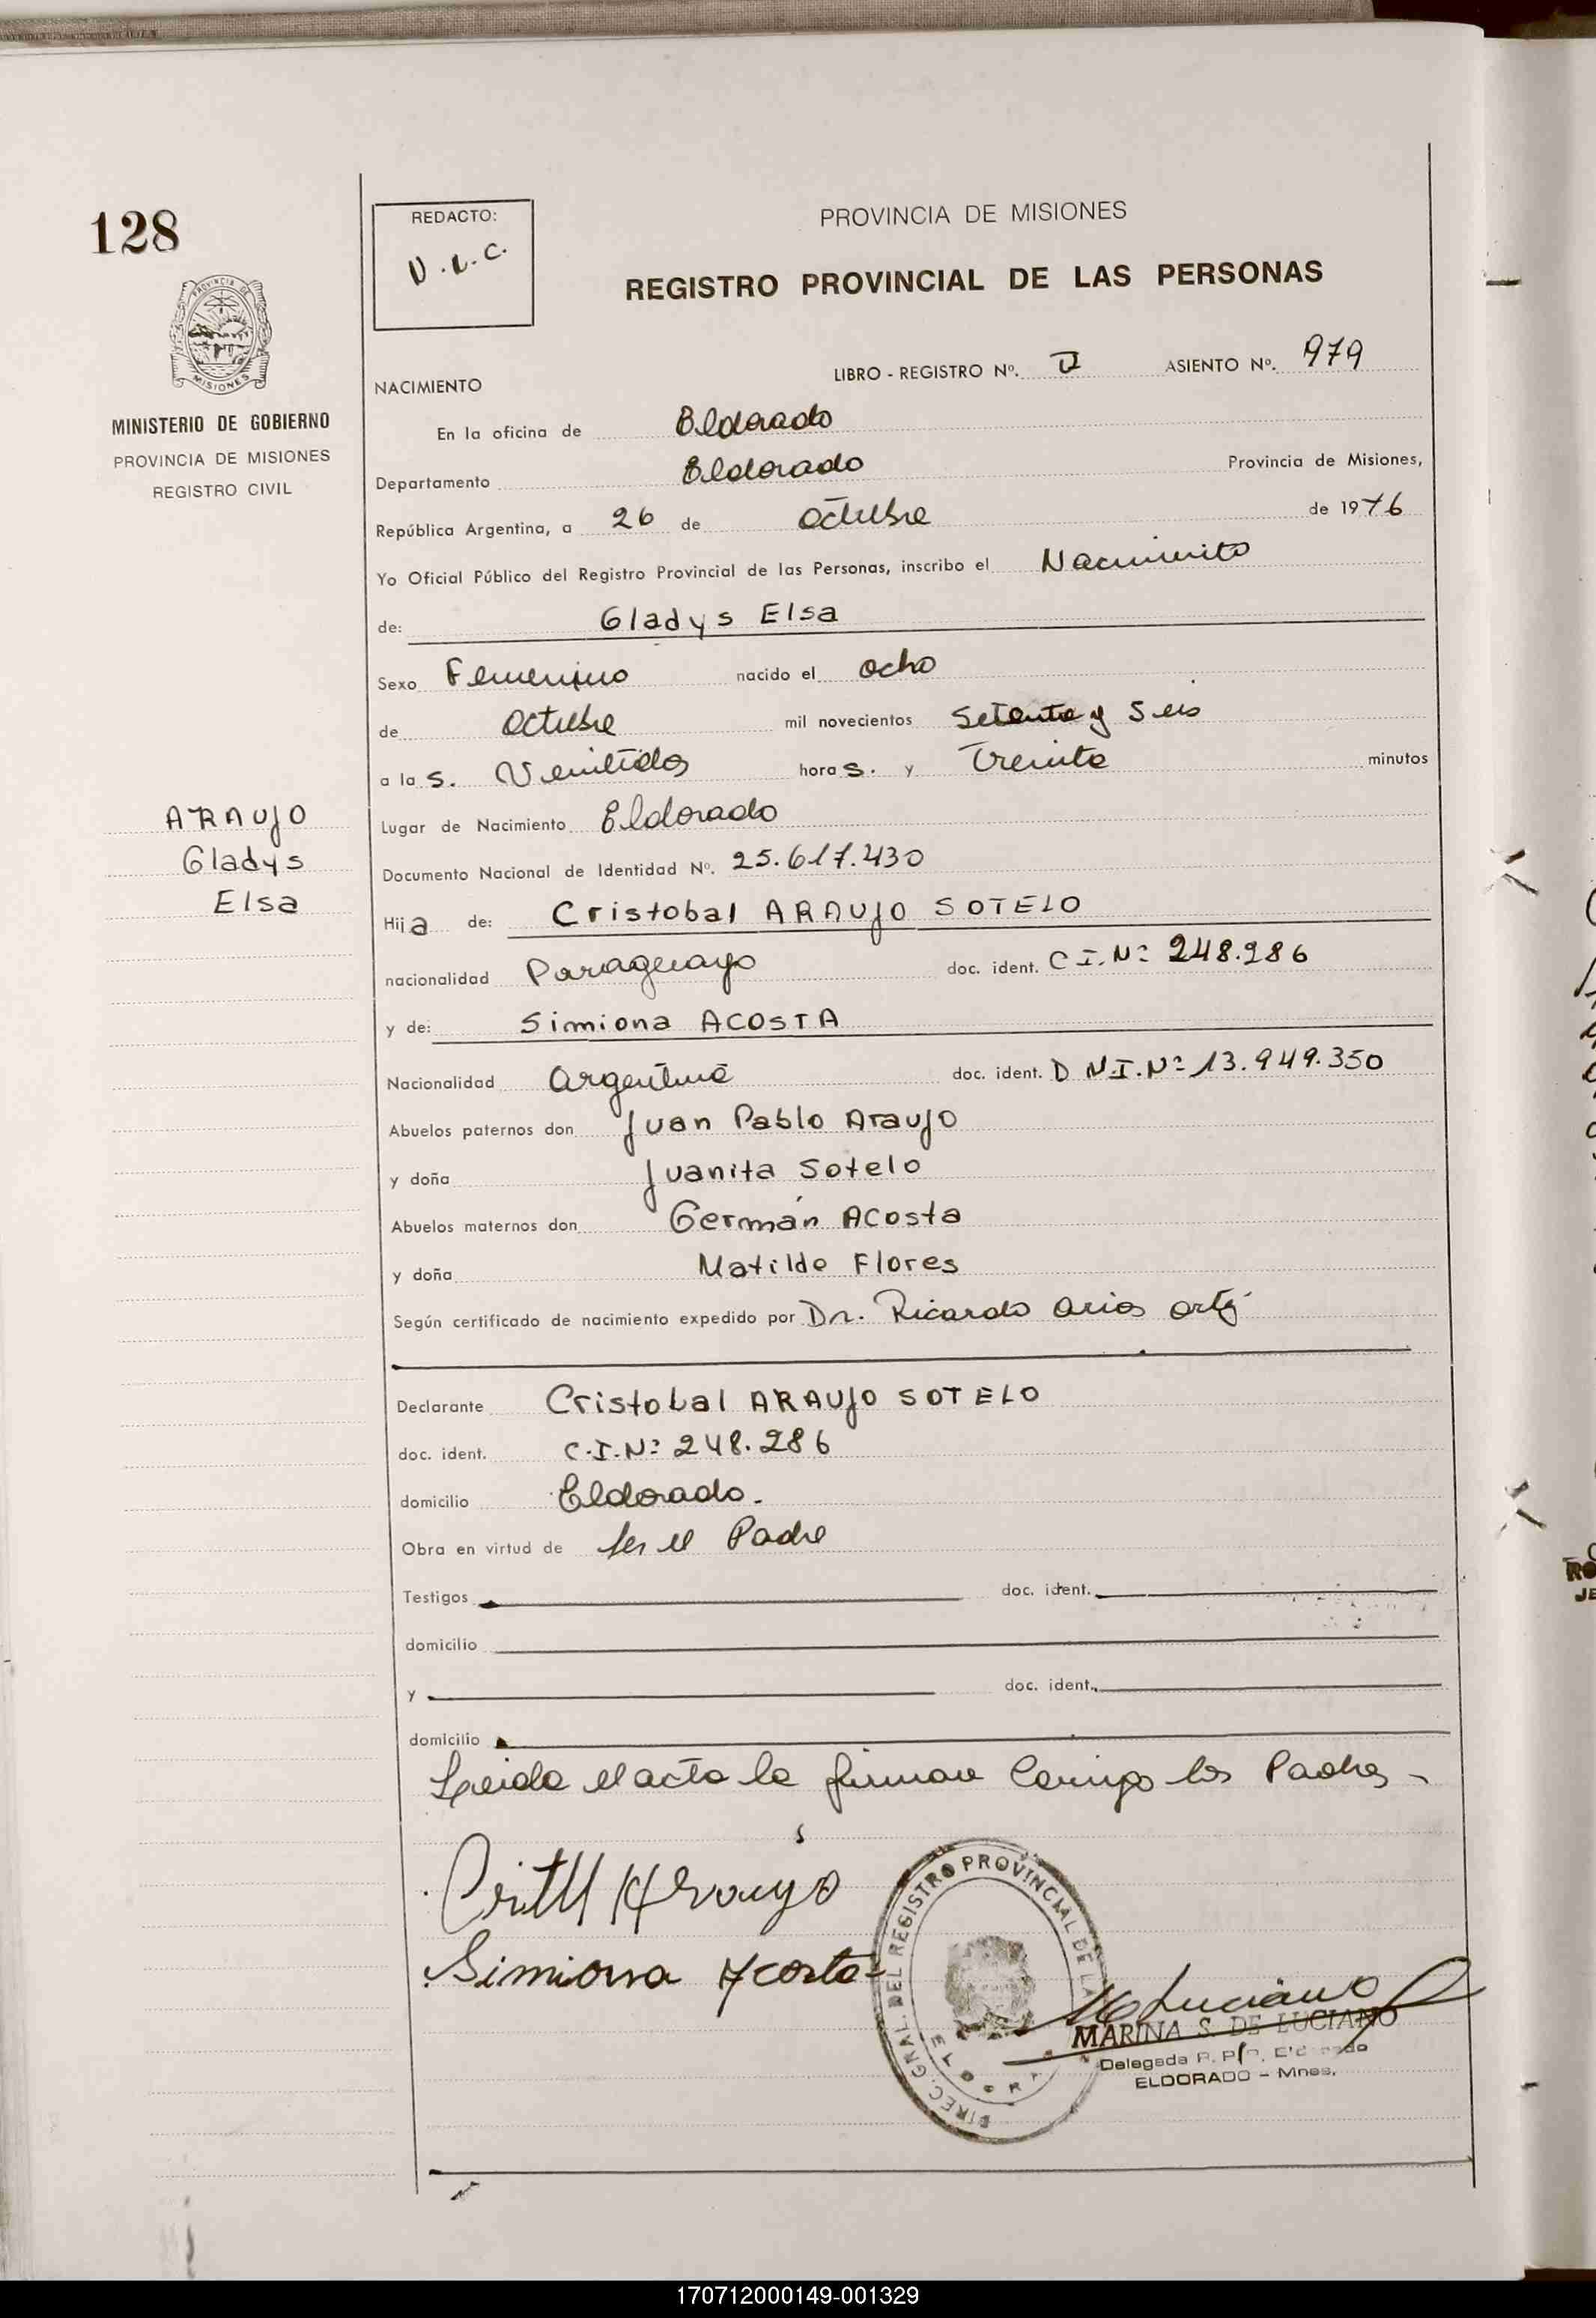 128
REDACTO:
PROVINCIA DE MISIONES
REGISTRO PROVINCIAL DE LAS PERSONAS
PROVINCIA DE
MISIONES
MINISTERIO DE GOBIERNO
PROVINCIA DE MISIONES
REGISTRO CIVIL
NACIMIENTO
LIBRO - REGISTRO Nº. II ASIENTO Nº. 979
En la oficina de Eldorado
Departamento Eldorado Provincia de Misiones,
República Argentina, a 26 de Octubre de 1976
Yo Oficial Público del Registro Provincial de las Personas, inscribo el Nacimiento
de: Gladys Elsa
Sexo Femenino nacido el ocho
de Octubre mil novecientos Setenta y Seis
a las. Veintidos horas. y Treinta minutos
ARAUJO
Gladys
Elsa
Lugar de Nacimiento Eldorado
Documento Nacional de Identidad Nº. 25.617.430
Hija de: Cristobal ARAUJO SOTELO
nacionalidad Paraguayo doc. ident. C I. Nº 248.286
y de: Simiona ACOSTA
Nacionalidad Argentina doc. ident. D N.I. Nº 13.949.350
Abuelos paternos don Juan Pablo Araujo
y doña Juanita Sotelo
Abuelos maternos don Germán Acosta
y doña Matilde Flores
Según certificado de nacimiento expedido por Dr. Ricardo Arias
Declarante Cristobal ARAUJO SOTELO
doc. ident. C.I. Nº 248.286
domicilio Eldorado.
Obra en virtud de ser el Padre
Testigos doc. ident.
domicilio
y doc. ident.
domicilio
Leida el acta la firman Conmigo los Padres -
Araujo
Simiona Acosta
DIREC. GRAL. DEL REGISTRO PROVINCIAL DE LA
Luciano
MARINA S. DE LUCIANO
Delegada R. P. Eldorado
ELDORADO - Mnes.
170712000149-001329